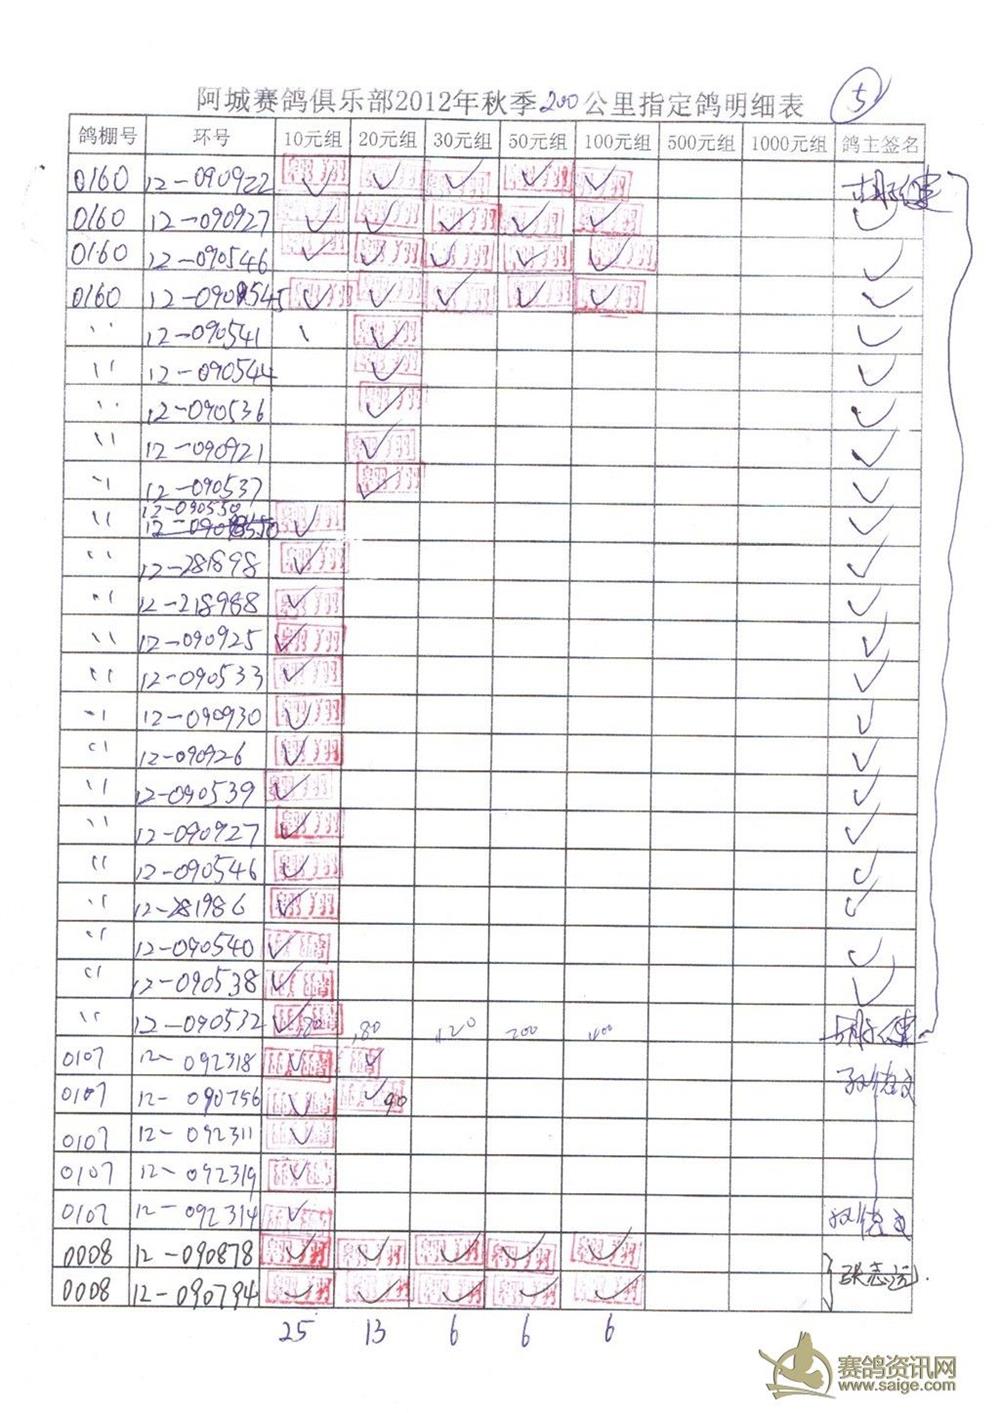 阿城赛鸽俱乐部2012年秋季200公里指定鸽明细表 5
鸽棚号 环号 10元组 20元组 30元组 50元组 100元组 500元组 1000元组 鸽主签名
0160 12-090922 ✓ ✓ ✓ ✓ ✓
0160 12-090927 ✓ ✓ ✓ ✓ ✓ ✓
0160 12-090546 ✓ ✓ ✓ ✓ ✓ ✓
0160 12-090545 ✓ ✓ ✓ ✓ ✓ ✓
〃 12-090541 ✓ ✓
〃 12-090544 ✓ ✓
〃 12-090536 ✓ ✓
〃 12-090921 ✓ ✓
〃 12-090537 ✓ ✓
12-090550
〃 ✓ ✓
〃 12-281898 ✓ ✓
〃 12-218988 ✓ ✓
〃 12-090925 ✓ ✓
〃 12-090533 ✓ ✓
〃 12-090930 ✓ ✓
〃 12-090926 ✓ ✓
〃 12-090539 ✓ ✓
〃 12-090927 ✓ ✓
〃 12-090546 ✓ ✓
〃 12-281986 ✓ ✓
〃 12-090540 ✓ ✓
〃 12-090538 ✓ ✓
〃 12-090532 ✓ 180 180 120 200 400
0107 12-092318 ✓ ✓
0107 12-090756 ✓ ✓ 90
0107 12-092311 ✓
0107 12-092319 ✓
0107 12-092314 ✓
0008 12-090878 ✓ ✓ ✓ ✓ ✓
0008 12-090794 ✓ ✓ ✓ ✓ ✓ 张志远
25 13 6 6 6
赛鸽资讯网
www.saige.com